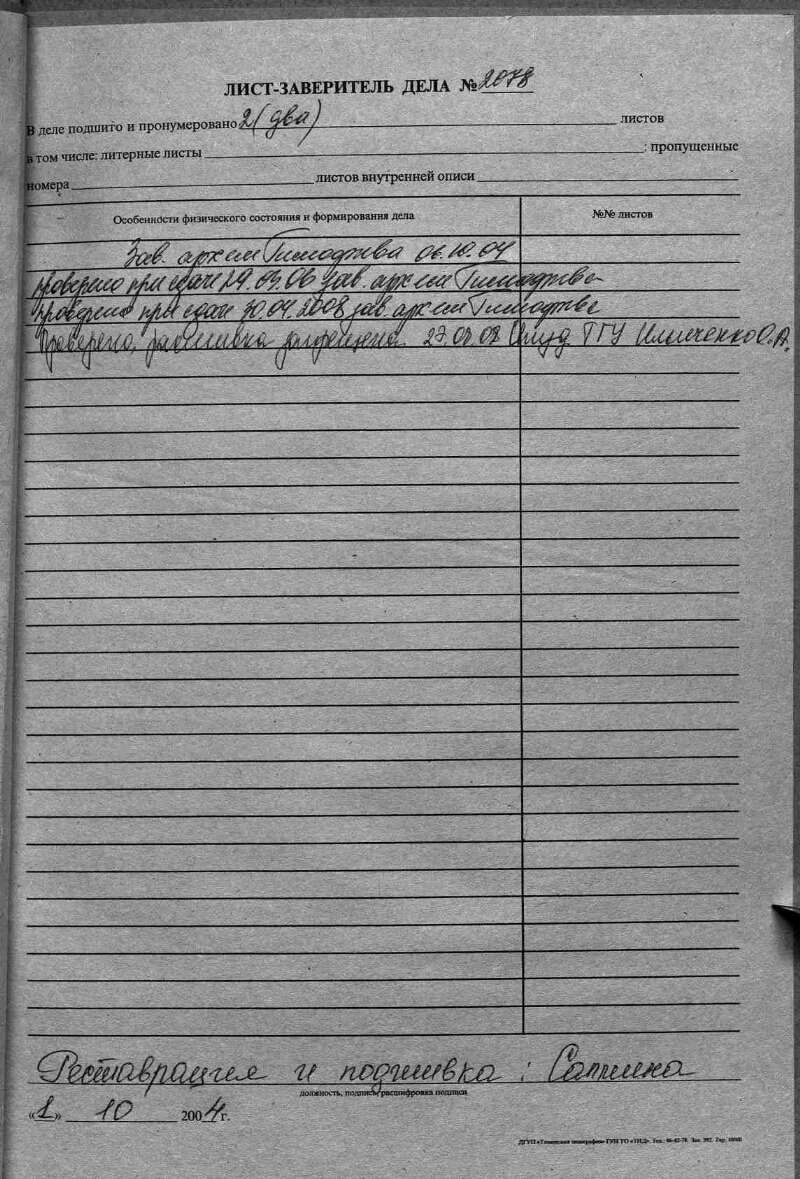 ЛИСТ-ЗАВЕРИТЕЛЬ ДЕЛА № 2078
В деле подшито и пронумеровано 2 (два) листов
в том числе: литерные листы ; пропущенные
номера листов внутренней описи
Особенности физического состояния и формирования дела №№ листов
Зав. архивом Тимофеева 06.10.04
проверено при сдаче 29.03.06 Зав. архивом Тимофеева
проверено при сдаче 30.04.2008 зав. архивом Тимофеева
Проверено, расшивка запрещена. 27.08.08 Студ. ТГУ Ильиченко О.А.
Реставрация и подшивка:
должность, подпись, расшифровка подписи
«1» 10 2004 г.